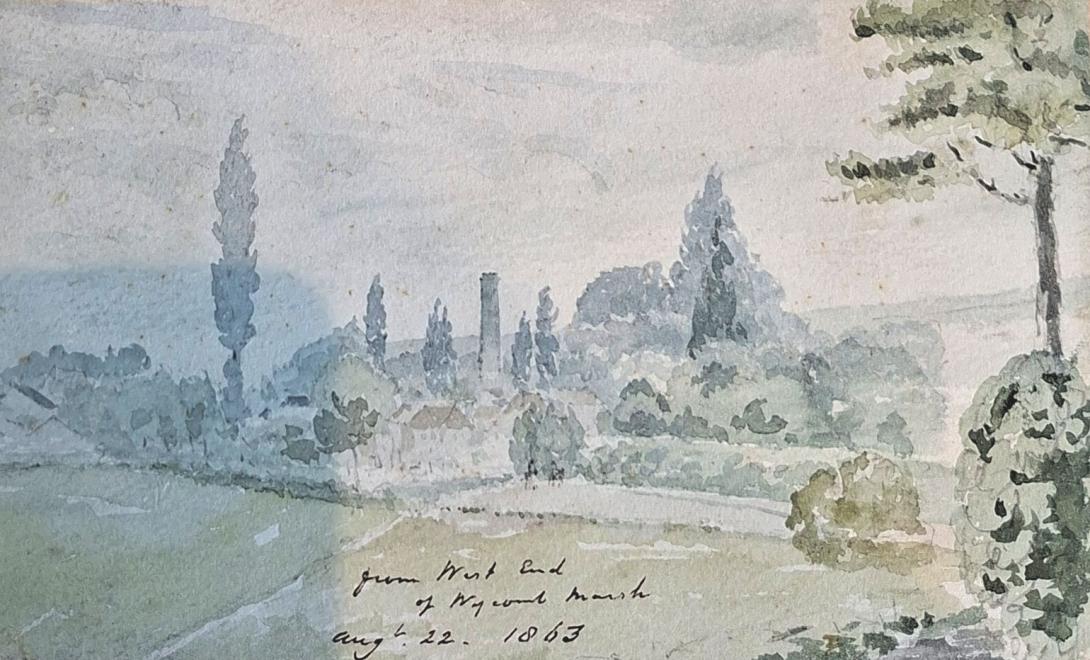 from West End
of Wycomb Marsh
Augt. 22. 1863